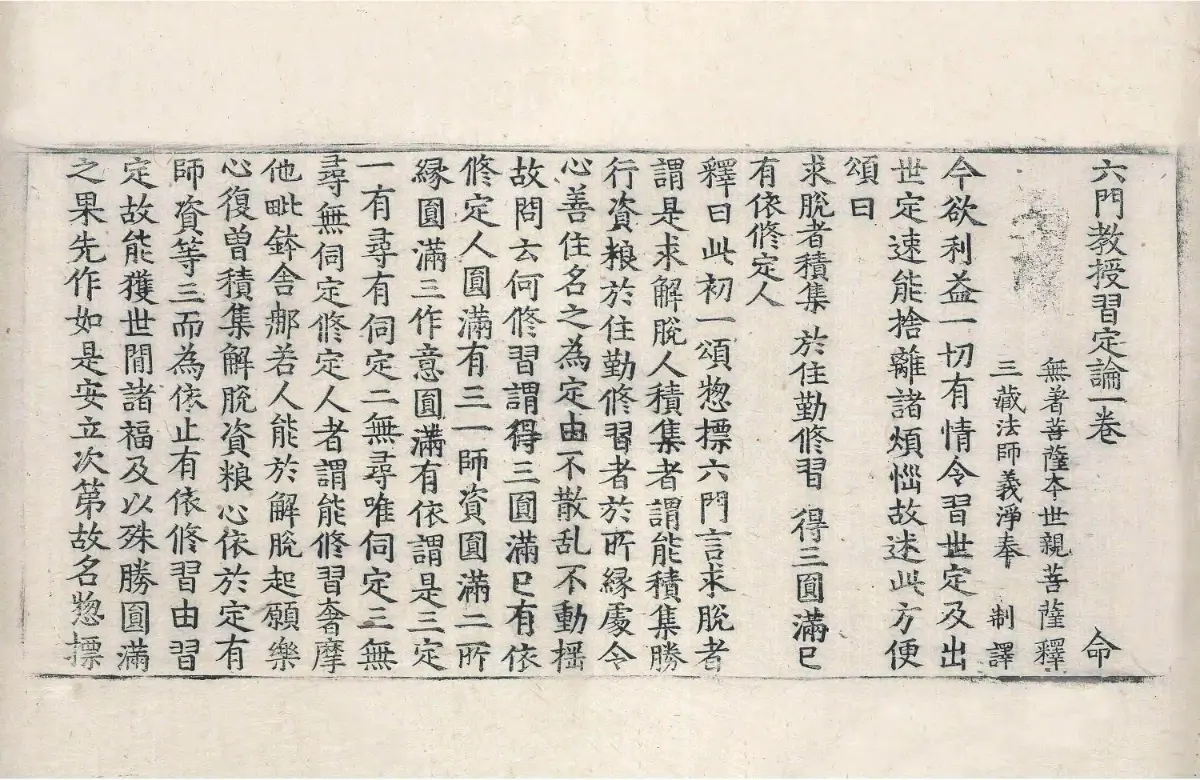 六門教授習定論一卷 命
無著菩薩本世親菩薩釋
三藏法師義淨奉 制譯
今欲利益一切有情令習世定及出
世定速能捨離諸煩惱故述此方便
頌曰
求脫者積集 於住勤修習 得三圓滿已
有依修定人
釋曰此初一頌惣標六門言求脫者
謂是求解脫人積集者謂能積集勝
行資粮於住勤修習者於所緣處令
心善住名之為定由不散乱不動揺
故問云何修習謂得三圓滿已有依
修定人圓滿有三一師資圓滿二所
緣圓滿三作意圓滿有依謂是三定
一有尋有伺定二無尋唯伺定三無
尋無伺定修定人者謂能修習奢摩
他毗鉢舍那若人能於解脫起願樂
心復曾積集解脫資粮心依於定有
師資等三而為依止有依修習由習
定故能獲世間諸福及以殊勝圓滿
之果先作如是安立次第故名惣摽